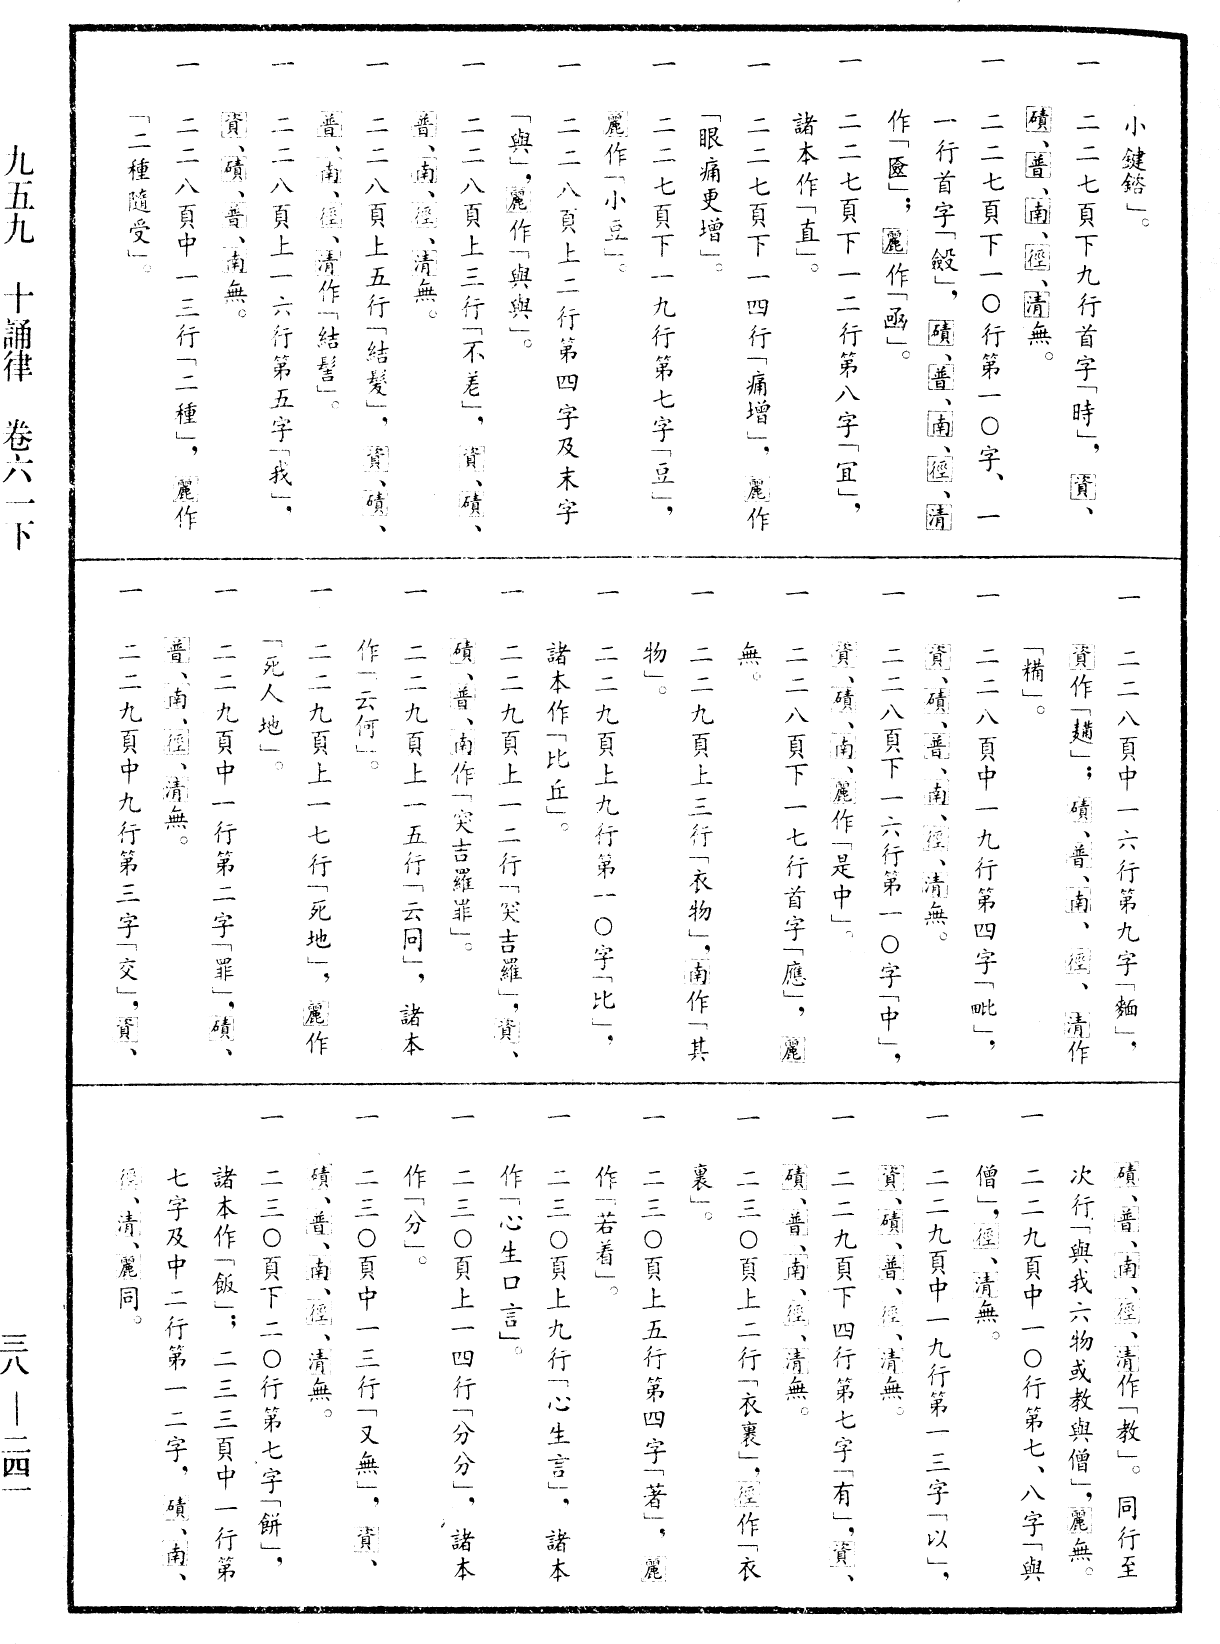 小鍵鎔」。
一 二二七頁下九行首字「時」，資、
磧、普、南、徑、清無。
一 二二七頁下一〇行第一〇字、一
一行首字「㿱」，磧、普、南、徑、清
作「匳」；麗作「函」。
一 二二七頁下一二行第八字「冝」，
諸本作「直」。
一 二二七頁下一四行「痛增」，麗作
「眼痛更增」。
一 二二七頁下一九行第七字「豆」，
麗作「小豆」。
一 二二八頁上二行第四字及末字
「與」，麗作「與與」。
一 二二八頁上三行「不差」，資、磧、
普、南、徑、清無。
一 二二八頁上五行「結髮」，資、磧、
普、南、徑、清作「結髻」。
一 二二八頁上一六行第五字「我」，
資、磧、普、南無。
一 二二八頁中一三行「二種」，麗作
「二種隨受」。
一 二二八頁中一六行第九字「麵」，
資作「䴾」；磧、普、南、徑、清作
「糒」。
一 二二八頁中一九行第四字「毗」，
資、磧、普、南、徑、清無。
一 二二八頁下一六行第一〇字「中」，
資、磧、南、麗作「是中」。
一 二二八頁下一七行首字「應」，麗
無。
一 二二九頁上三行「衣物」，南作「其
物」。
一 二二九頁上九行第一〇字「比」，
諸本作「比丘」。
一 二二九頁上一二行「突吉羅」，資、
磧、普、南作「突吉羅罪」。
一 二二九頁上一五行「云同」，諸本
作「云何」。
一 二二九頁上一七行「死地」，麗作
「死人地」。
一 二二九頁中一行第二字「罪」，磧、
普、南、徑、清無。
一 二二九頁中九行第三字「交」，資、
磧、普、南、徑、清作「教」。同行至
次行「與我六物或教與僧」，麗無。
一 二二九頁中一〇行第七、八字「與
僧」，徑、清無。
一 二二九頁中一九行第一三字「以」，
資、磧、普、徑、清無。
一 二二九頁下四行第七字「有」，資、
磧、普、南、徑、清無。
一 二三〇頁上二行「衣裹」，徑作「衣
裏」。
一 二三〇頁上五行第四字「著」，麗
作「若着」。
一 二三〇頁上九行「心生言」，諸本
作「心生口言」。
一 二三〇頁上一四行「分分」，諸本
作「分」。
一 二三〇頁中一三行「又無」，資、
磧、普、南、徑、清無。
一 二三〇頁下二〇行第七字「餅」，
諸本作「飯」；二三三頁中一行第
七字及中二行第一二字，磧、南、
徑、清、麗同。
九五九 十誦律 卷六一下
三八—二四一